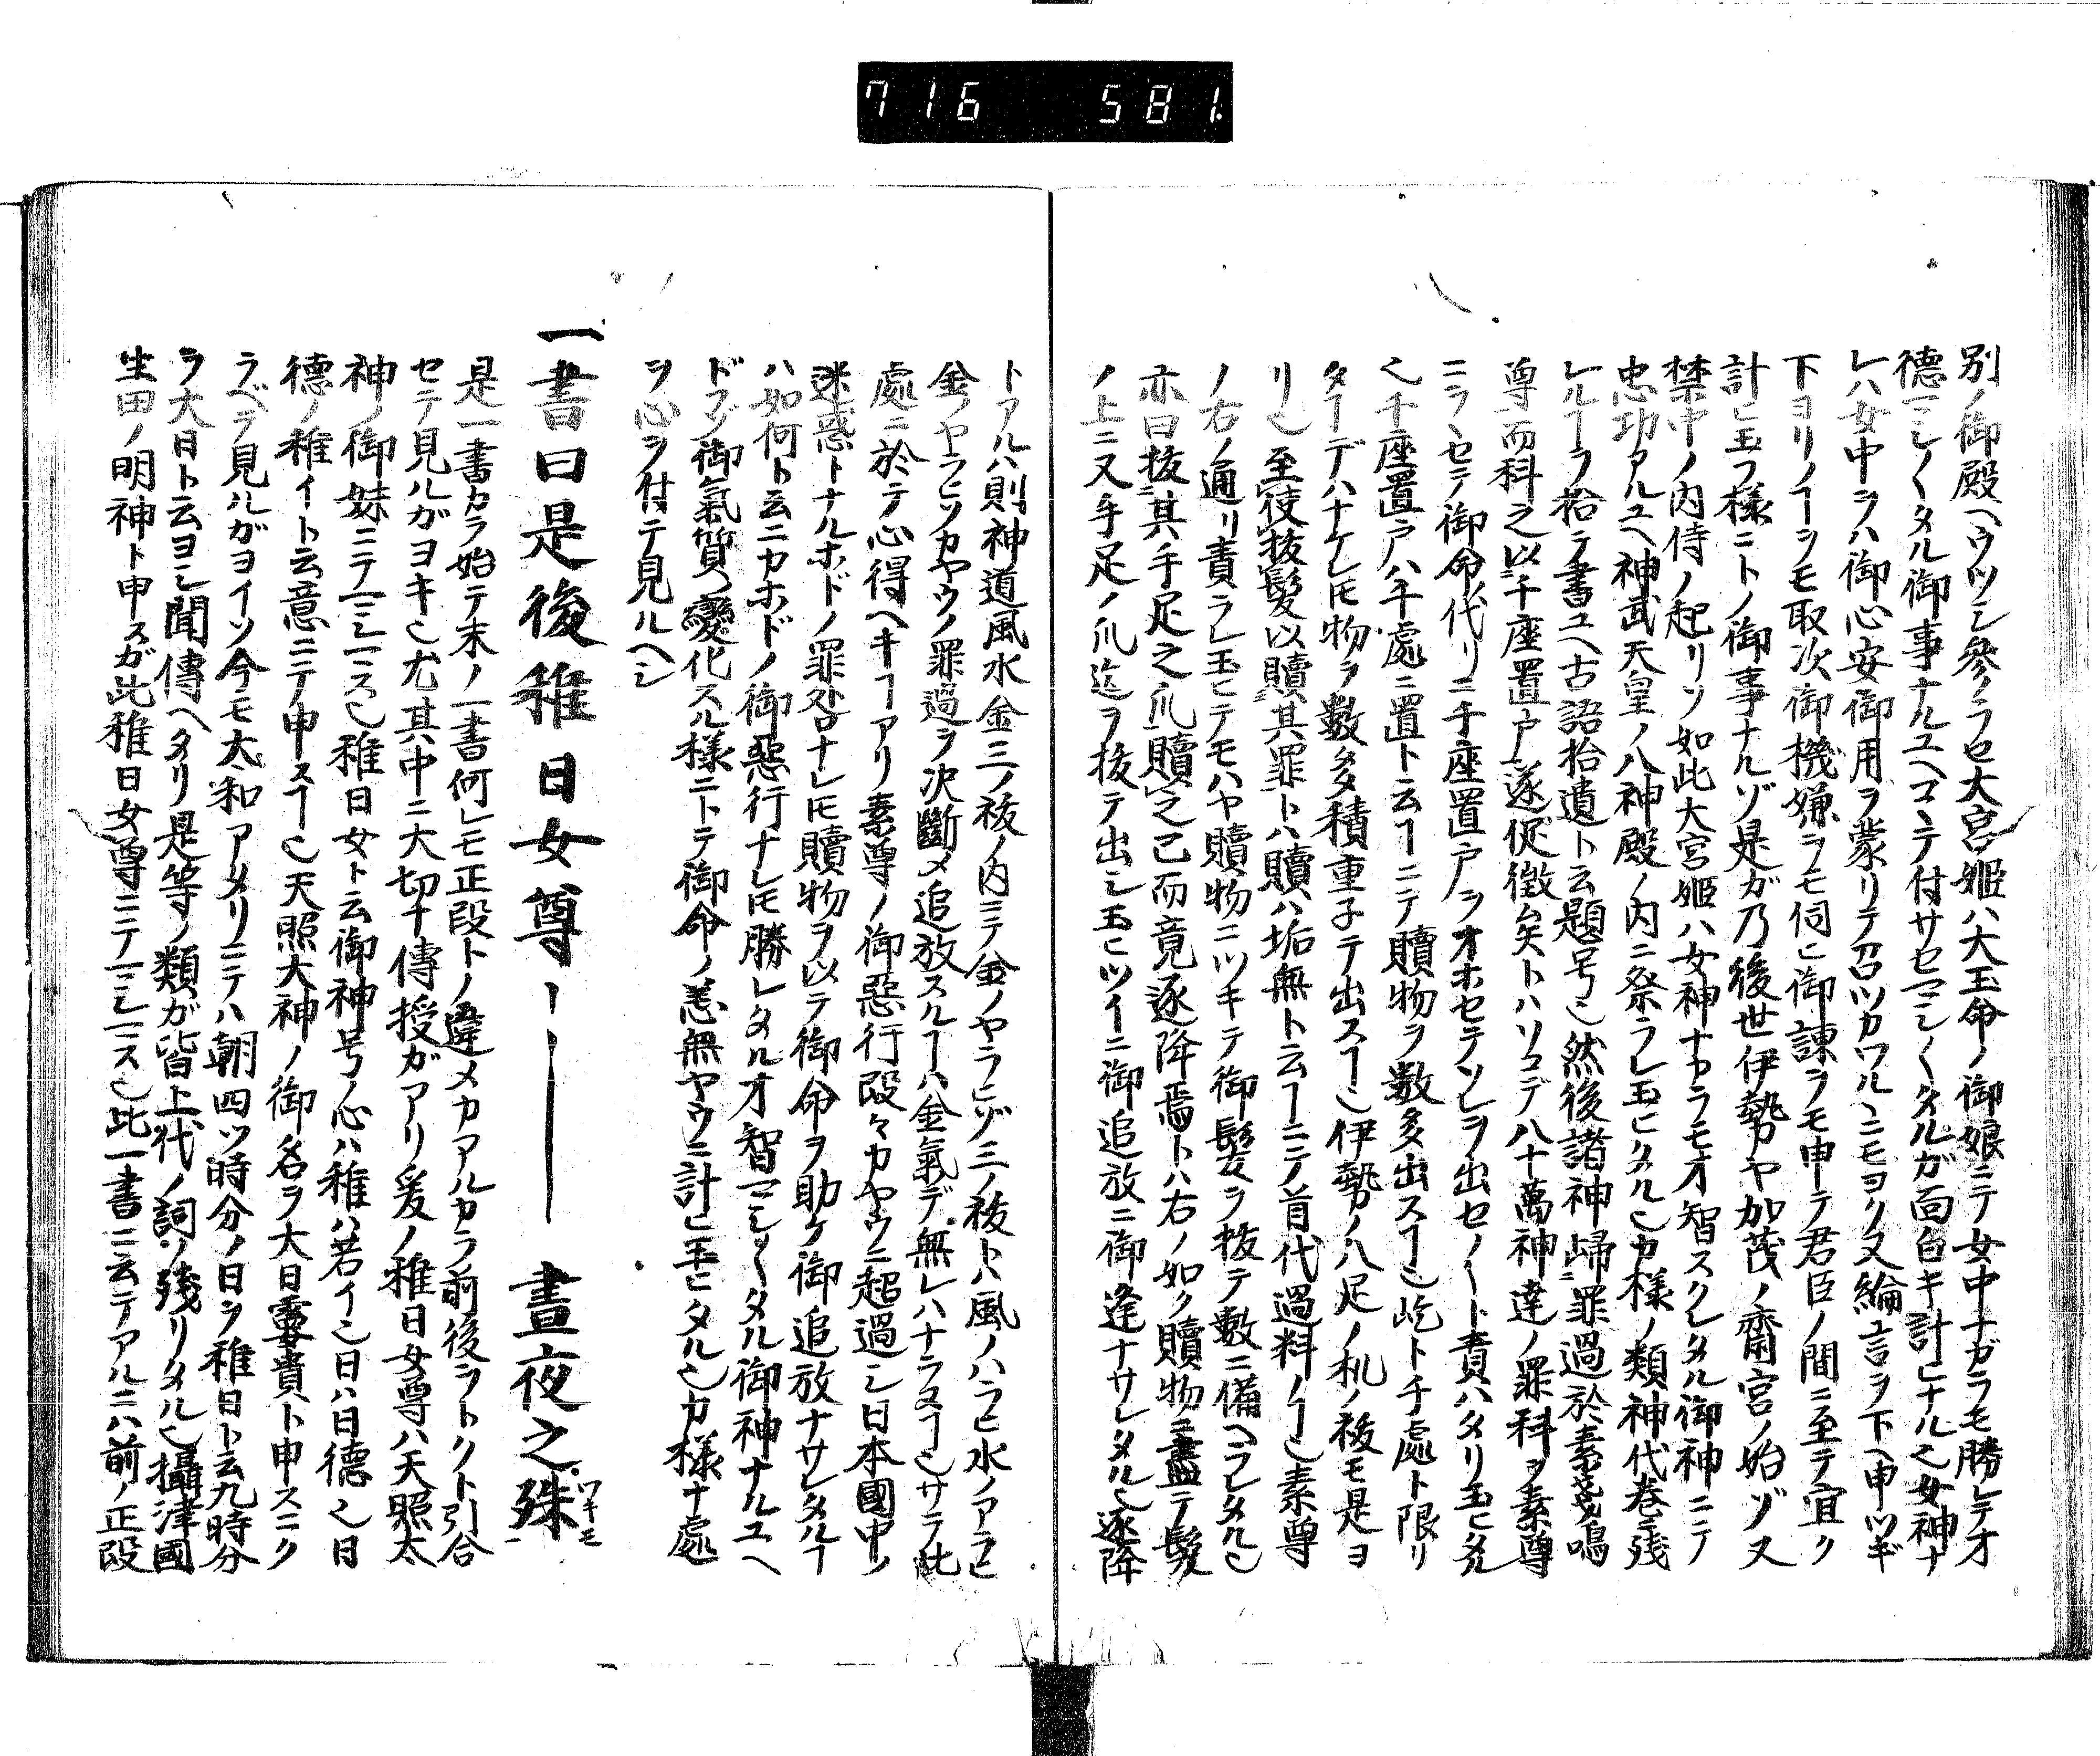 716 581.
別ノ御殿ヘウツシ參ラセ大宮姫ハ大玉命ノ御娘ニテ女中ナガラモ勝レテオ
德マシ〱タル御事ナルユヘコヽテ付サセマシ〱タルガ面白キ計ヒナル也女神ナ
レハ女中ヲハ御心安御用ヲ蒙リテ召ツカワルヽニモヨリ又綸言ヲ下ヘ申ツギ
下ヨリノヿヲモ取次御機嫌ヲモ伺ヒ御諫ヲモ申テ君臣ノ間ニ至テ宜ク
計ヒ玉フ様ニトノ御事ナルゾ是ガ乃後世伊勢ヤ加茂ノ齋宮ノ始ゾ又
禁中ノ内侍ノ起リソ如此大宮姫ハ女神ナカラモ才智スクレタル御神ニテ
忠功アルユヘ神武天皇ノ八神殿ノ内ニ祭ラレ玉ヒタル也カ様ノ類神代巻ニ残
レルヿヲ拾テ書ユヘ古語拾遺ト云題号也然後諸神歸罪過於素戔嗚
尊而科之以千座置戸遂促徴矣トハソコデ八十萬神達ノ罪科ヲ素尊
ニヲヽセテ御命代リニ千座置戸ヲオホセテソレヲ出セ〱ト責ハタリ玉ヒタル
也千座置ヲハ千處ニ置ト云ヿニテ贖物ヲ数多出スヿ也屹ト千處ト限リ
タヿデハナケレ𪜈物ヲ數多積重子テ出スヿ也伊勢ノ八足ノ机ノ祓モ是ヨ
リ也至使拔髮以贖其罪トハ贖ハ垢無ト云ヿニテ首代過料ノヿ也素尊
ノ右ノ通リ責ラレ玉ヒテモハヤ贖物ニツキテ御髮ヲ拔テ數ニ備ヘラレタル也
亦曰拔其手足之爪贖之已而竟逐降焉トハ右ノ如ク贖物ニ盡テ髮
ノ上ニ又手足ノ爪迄ヲ拔テ出シ玉ヒツイニ御追放ニ御逢ナサレタル也逐降
トアルハ則神道風水金三ノ祓ノ内ニテ金ノヤラヒゾ三ノ祓トハ風ノハラヒ水ノアラヒ
金ノヤラヒソカヤウノ罪過ヲ決斷メ追放スルヿハ金氣デ無レハナラヌヿ也サテ此
處ニ於テ心得ヘキヿアリ素尊ノ御惡行段々カヤウニ超過シ日本國中ノ
迷惑トナルホドノ罪咎ナレ𪜈贖物ヲ以テ御命ヲ助ケ御追放ナサレタルヿ
ハ如何ト云ニカホドノ御惡行ナレ𪜈勝レタルオ智マシ〱タル御神ナルユヘ
ドフゾ御氣質ヘ變化スル様ニトテ御命ノ恙無ヤウニ計ヒ玉ヒタル也カ様ナ處
ヲ心ヲ付テ見ルヘシ
一書曰是後稚日女尊ヽ―――晝夜之殊ワキモ
是一書カラ始テ末ノ一書何レモ正段トノ違メカアルカラ前後ヲトクト引合
セテ見ルガヨキ也尤其中ニ大切ナ傳授ガアリ爰ノ稚日女尊ハ天照太
神ノ御妹ニテマシマス也稚日女ト云御神号ノ心ハ稚ハ若イ也日ハ日德也日
德ノ稚イト云意ニテ申スヿ也天照大神ノ御名ヲ大日孁貴ト申スニク
ラベテ見ルガヨイソ今モ大和アタリニテハ朝四ツ時分ノ日ヲ稚日ト云九時分
ヲ大日ト云ヨシ聞傳ヘタリ是等ノ類ガ皆上代ノ詞ノ殘リタル也攝津國
生田ノ明神ト申スガ此稚日女尊ニテマシマス也此一書ニ云テアルニハ前ノ正段